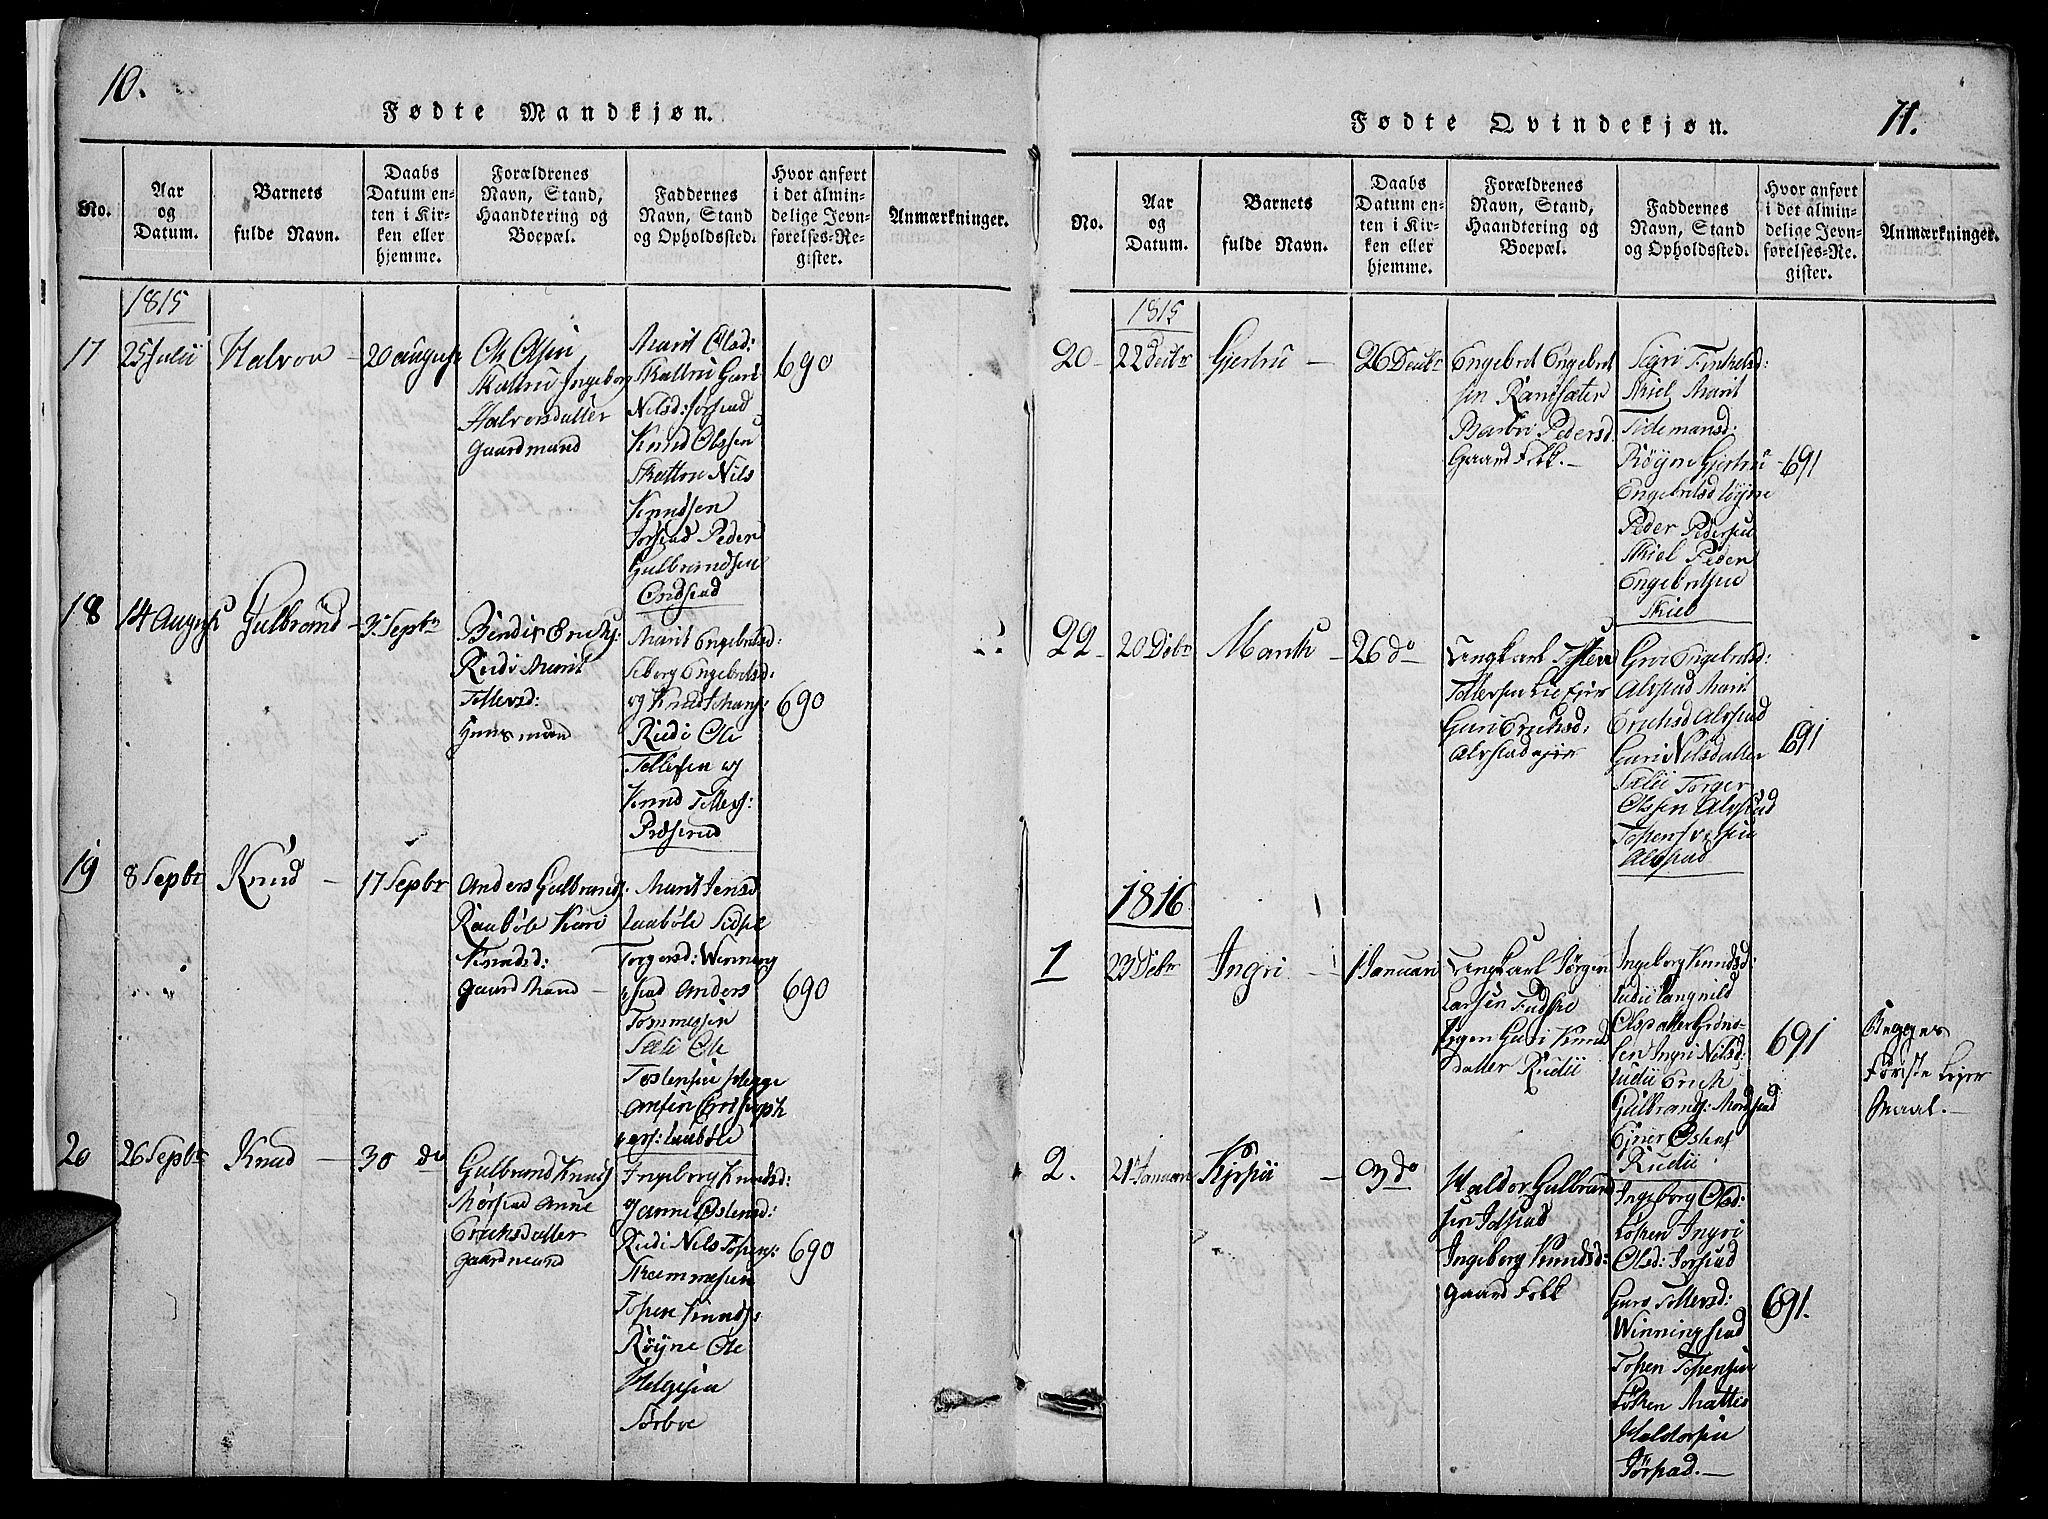 10.
Fødte Mandkjøn.
No.
Aar
og
Datum.
Barnets
fulde Navn.
Daabs
Datum en-
ten i Kir-
ken eller
hjemme.
Forældrenes
Navn, Stand,
Haandtering og
Boepæl.
Faddernes
Navn, Stand
og Opholdssted.
Hvor anført
i det almin-
delige Jevn-
førelses-Re-
gister.
Anmærkninger.
1815
17
25 Julii
Halvor
20 august
Ole Olsen
Skattru Ingeborg
Halvorsdatter
gaardmand
Marit Olsd:
Skattru Guri
Nilsd: Jørstad
Knud Olssen
Skattru Nils
Knudsen
Jorstad Peder
Gulbrandsen
690
18
14 August
Gulbrand
3 Septr
Rudi Marit
Tollevsd:
Huusmand
Marit Engebretsd:
Seborg Engebretsd:
og Knud
Rudi Ole
Tollefsen og
Knud Tollevs:
690
19
8 Septbr
Knud
17 Septbr
Anders Gulbrands:
Raabøle Kari
Knudsd:
gaardmand
Marit Jensd
Raabøle Sidsel
Torgersd: Winning
stad Anders
Tommessen
Sæli Ole
Tostensen
690
20
26 Septbr
Knud
30 do
Gulbrand Knuds
Mørstad Anne
Erichsdatter
gaardmand
Ingeborg Knudsd:
og Anne Østensd:
Rudi Nils Tostens:
Tosten Knuds:
Røyne Ole
Helgesen
Sørboe
690
11.
Fødte Qvindekjøn.
No.
Aar
og
Datum.
Barnets
fulde Navn.
Daabs
Datum en-
ten i Kir-
ken eller
hjemme.
Forældrenes
Navn, Stand,
Haandtering og
Boepæl.
Faddernes
Navn, Stand
og Opholdssted.
Hvor anført
i det almin-
delige Jevn-
førelses-Re-
gister.
Anmærkninger.
1815
20
22 Decbr
Gjertru
26 Decbr
Engebret Engebret
sen Ramsæter
Barbri Pedersd.
Gaard Folk.
Sigri
Skiel Marit
Tidemansd:
Røyne Gjertru
Engebretsd Røyne
Peder Pedersen
Skiel Peder
Engebretsen
Skiel
691
22
20 Debr
Marith
26 do
Ungkarl Tosten
Tollefsen
Guri Erichsd:
Alvstad
Guri Engebretsd:
Alvstad Marit
Erichsd Alvstad
Guri Nilsdatter
Sælie Torger
Olssen Alvstad
Alvstad
691
1816
1
23 Debr
Ingri
1 Januari
Ungkarl Jørgen
Larsen
Pigen Guri Knud
Datter Rudii
Ingeborg Knudsd:
Rudii Rangnild
Olsdatter Grøns-
Ingri Nilsd:
Rudii Erich
Gulbrands: Mørstad
Ejner Østens
Rudii
691
Begges
Første Lejer
Maal.
2.
21 Januari
3 do
Haldor Gulbrand
sen Jolstad
Ingeborg Knudsd:
Gaard Folk
Ingeborg Olsd:
Løken Ingri
Olsd: Jorstad
Guro Tollevsd:
Winningstad
Tosten Tostensen
Løken Mattis
Haldorsen
Jørstad.
691.